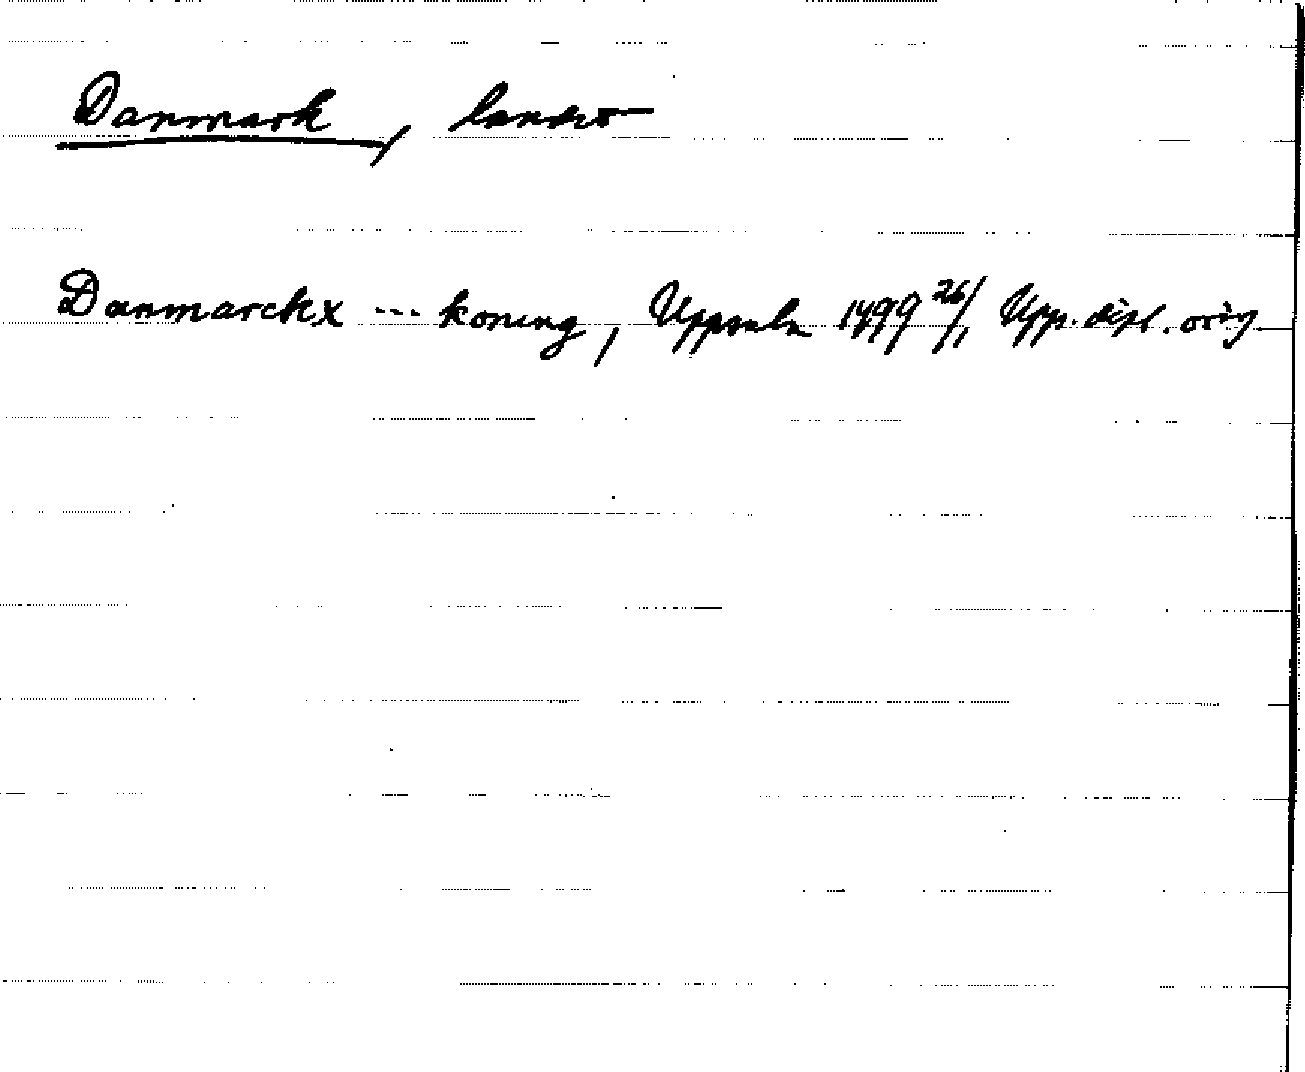 Danmark, landet
Danmarckx --- koning, Uppsala 1499 26/1 Upp. dipl. orig.